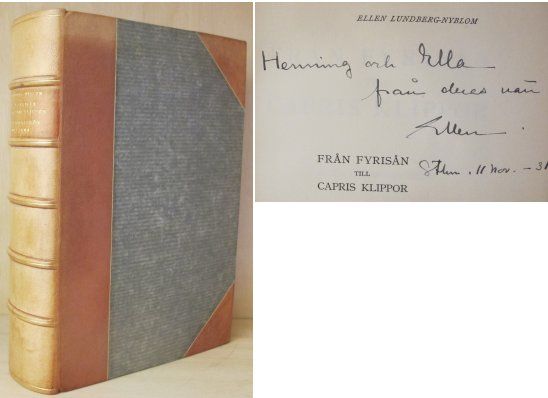 ELLEN LUNDBERG-NYBLOM
Henning och Ella
från deres vän
Ellen.
FRÅN FYRISÅN
TILL
CAPRIS KLIPPOR
Sthm. 11 Nov. - 31